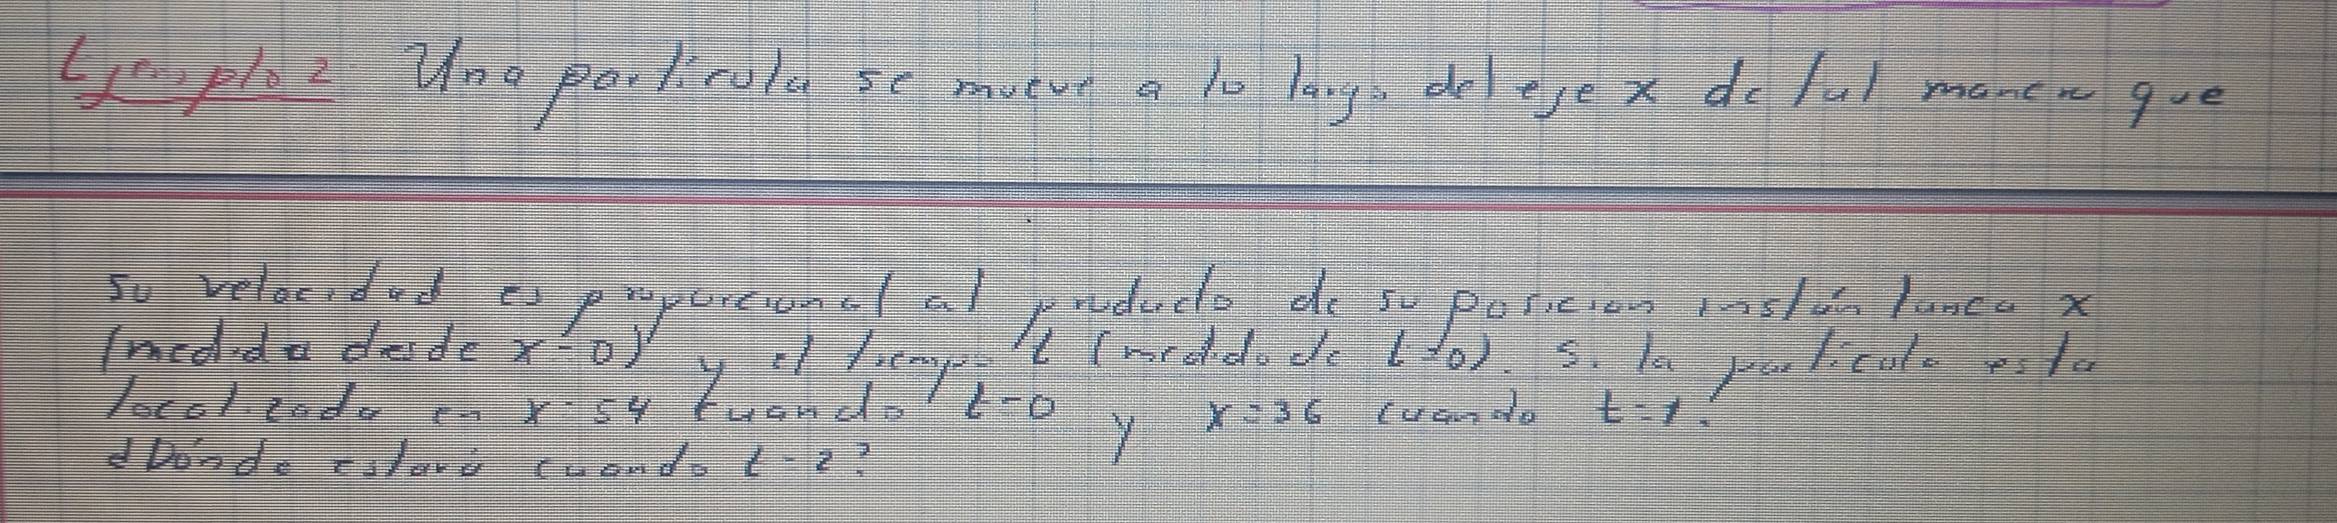 Ejemplo 2 Una partícula se mueve a lo largo del eje x de tal manera que
su velocidad es proporcional al producto de su posicion instántanea x
(medida desde x=0) y el tiempo t (medido de t=0). Si la particula esta
localizada en x=54 cuando t=0 y x=36 cuando t=1.
¿Dónde estará cuando t=2?